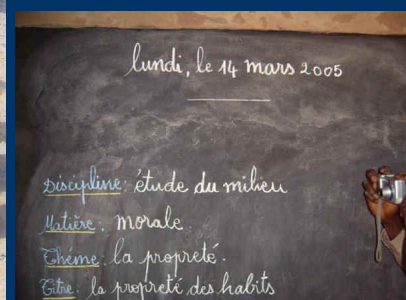 lundi, le 14 mars 2005
Discipline: étude du milieu
Matière: morale.
Thème: la propreté.
Titre: la propreté des habits